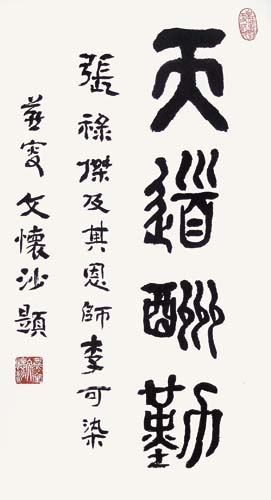 天道酬勤
張祿傑及其恩師李可染
燕叟文懷沙題